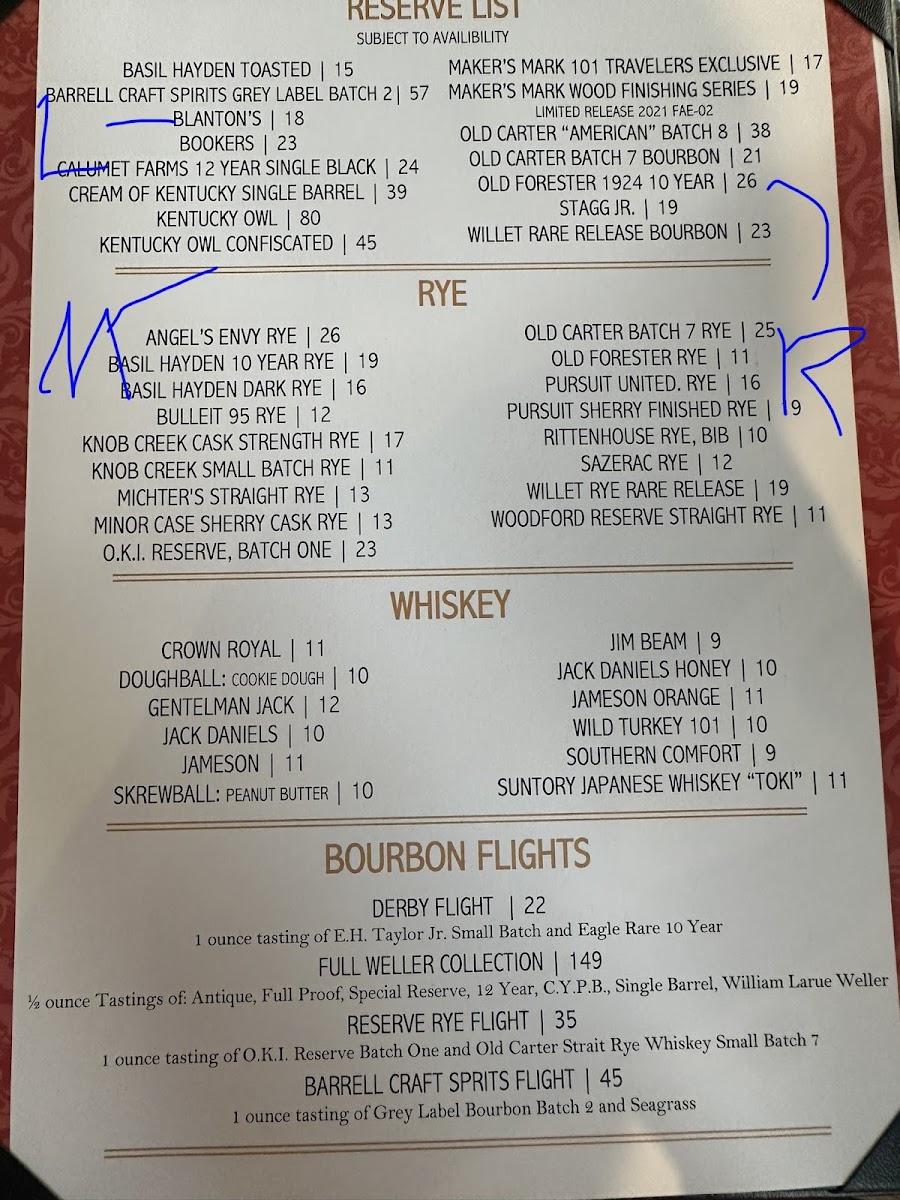 RESERVE LIST
SUBJECT TO AVAILIBILITY
BASIL HAYDEN TOASTED | 15
BARRELL CRAFT SPIRITS GREY LABEL BATCH 2| 57
BLANTON'S | 18
BOOKERS | 23
CALUMET FARMS 12 YEAR SINGLE BLACK | 24
CREAM OF KENTUCKY SINGLE BARREL | 39
KENTUCKY OWL | 80
KENTUCKY OWL CONFISCATED | 45
MAKER'S MARK 101 TRAVELERS EXCLUSIVE | 17
MAKER'S MARK WOOD FINISHING SERIES | 19
LIMITED RELEASE 2021 FAE-02
OLD CARTER “AMERICAN” BATCH 8 | 38
OLD CARTER BATCH 7 BOURBON | 21
OLD FORESTER 1924 10 YEAR | 26
STAGG JR. | 19
WILLET RARE RELEASE BOURBON | 23
RYE
ANGEL'S ENVY RYE | 26
BASIL HAYDEN 10 YEAR RYE | 19
BASIL HAYDEN DARK RYE | 16
BULLEIT 95 RYE | 12
KNOB CREEK CASK STRENGTH RYE | 17
KNOB CREEK SMALL BATCH RYE | 11
MICHTER'S STRAIGHT RYE | 13
MINOR CASE SHERRY CASK RYE | 13
O.K.I. RESERVE, BATCH ONE | 23
OLD CARTER BATCH 7 RYE | 25
OLD FORESTER RYE | 11
PURSUIT UNITED. RYE | 16
PURSUIT SHERRY FINISHED RYE | 9
RITTENHOUSE RYE, BIB |10
SAZERAC RYE | 12
WILLET RYE RARE RELEASE | 19
WOODFORD RESERVE STRAIGHT RYE | 11
WHISKEY
CROWN ROYAL | 11
DOUGHBALL: COOKIE DOUGH | 10
GENTELMAN JACK | 12
JACK DANIELS | 10
JAMESON | 11
SKREWBALL: PEANUT BUTTER | 10
JIM BEAM | 9
JACK DANIELS HONEY | 10
JAMESON ORANGE | 11
WILD TURKEY 101 | 10
SOUTHERN COMFORT | 9
SUNTORY JAPANESE WHISKEY “TOKI” | 11
BOURBON FLIGHTS
DERBY FLIGHT | 22
1 ounce tasting of E.H. Taylor Jr. Small Batch and Eagle Rare 10 Year
FULL WELLER COLLECTION | 149
½ ounce Tastings of: Antique, Full Proof, Special Reserve, 12 Year, C.Y.P.B., Single Barrel, William Larue Weller
RESERVE RYE FLIGHT | 35
1 ounce tasting of O.K.I. Reserve Batch One and Old Carter Strait Rye Whiskey Small Batch 7
BARRELL CRAFT SPRITS FLIGHT | 45
1 ounce tasting of Grey Label Bourbon Batch 2 and Seagrass